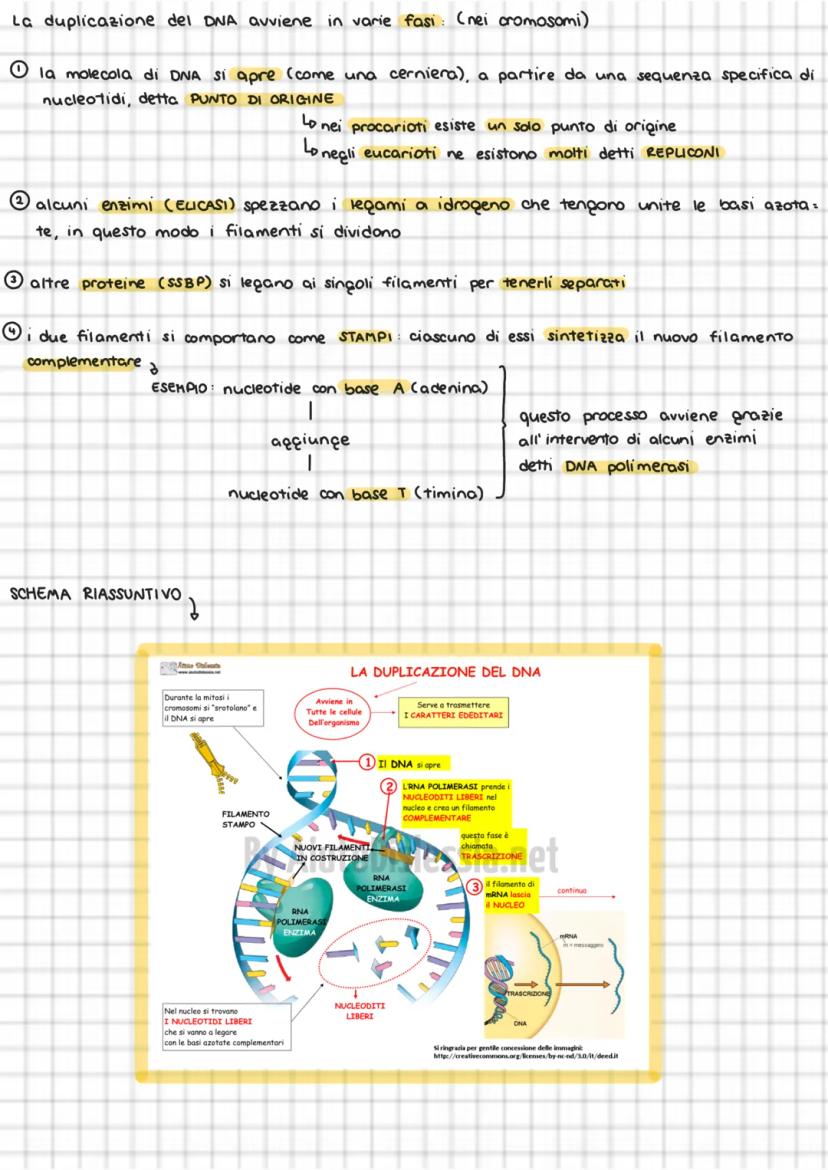 La duplicazione del DNA avviene in varie fasi: (nei cromosomi)
① la molecola di DNA si apre (come una cerniera), a partire da una sequenza specifica di
nucleotidi, detta PUNTO DI ORIGINE
↳ nei procarioti esiste un solo punto di origine
↳ negli eucarioti ne esistono molti detti REPLICONI
② alcuni enzimi (ELICASI) spezzano i legami a idrogeno che tengono unite le basi azota=
te, in questo modo i filamenti si dividono
③ altre proteine (SSBP) si legano ai singoli filamenti per tenerli separati
④ i due filamenti si comportano come STAMPI: ciascuno di essi sintetizza il nuovo filamento
complementare
ESEMPIO: nucleotide con base A (adenina)
aggiunge
nucleotide con base T (timina)
questo processo avviene grazie
all'intervento di alcuni enzimi
detti DNA polimerasi
SCHEMA RIASSUNTIVO
Aiuto Dislessia
www.aiutodislessia.net
LA DUPLICAZIONE DEL DNA
Durante la mitosi i
cromosomi si "srotolano" e
il DNA si apre
Avviene in
Tutte le cellule
Dell'organismo
Serve a trasmettere
I CARATTERI EDEDITARI
1 Il DNA si apre
2 L'RNA POLIMERASI prende i
NUCLEODITI LIBERI nel
nucleo e crea un filamento
COMPLEMENTARE
questo fase è
chiamata
TRASCRIZIONE
FILAMENTO
STAMPO
NUOVI FILAMENTI
IN COSTRUZIONE
By AiutoDislessia.net
RNA
POLIMERASI
ENZIMA
RNA
POLIMERASI
ENZIMA
3 il filamento di
mRNA lascia
il NUCLEO
continua
mRNA
m = messaggero
TRASCRIZIONE
DNA
NUCLEODITI
LIBERI
Nel nucleo si trovano
I NUCLEOTIDI LIBERI
che si vanno a legare
con le basi azotate complementari
Si ringrazia per gentile concessione delle immagini:
http://creativecommons.org/licenses/by-nc-nd/3.0/it/deed.it